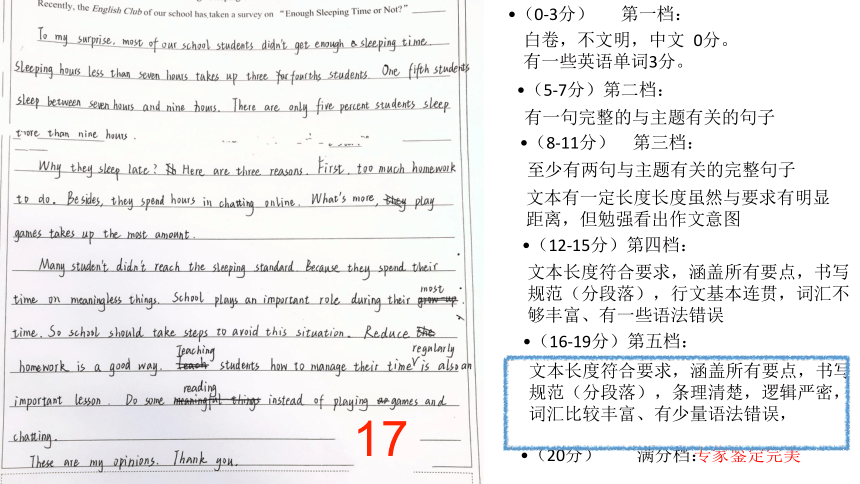 Recently, the English Club of our school has taken a survey on “Enough Sleeping Time or Not?”
To my surprise, most of our school students didn't get enough a sleeping time.
Sleeping hours less than seven hours takes up three fourths students. One fifth students
sleep between seven hours and nine hours. There are only five percent students sleep
more than nine hours.
Why they sleep late? Here are three reasons. First, too much homework
to do. Besides, they spend hours in chatting online. What's more, they play
games takes up the most amount.
Many student didn't reach the sleeping standard. Because they spend their
time on meaningless things. School plays an important role during their grow-up most
time. So school should take steps to avoid this situation. Reduce the
homework is a good way. Teach Teaching students how to manage their time regularly is also an
important lesson. Do some meaningful things reading instead of playing games and
chatting.
These are my opinions. Thank you.
17
•（0-3分） 第一档：
白卷，不文明，中文 0分。
有一些英语单词3分。
•（5-7分）第二档：
有一句完整的与主题有关的句子
•（8-11分） 第三档：
至少有两句与主题有关的完整句子
文本有一定长度长度虽然与要求有明显
距离，但勉强看出作文意图
•（12-15分）第四档：
文本长度符合要求，涵盖所有要点，书写
规范（分段落），行文基本连贯，词汇不
够丰富、有一些语法错误
•（16-19分）第五档：
文本长度符合要求，涵盖所有要点，书写
规范（分段落），条理清楚，逻辑严密，
词汇比较丰富、有少量语法错误，
•（20分） 满分档：专家鉴定完美